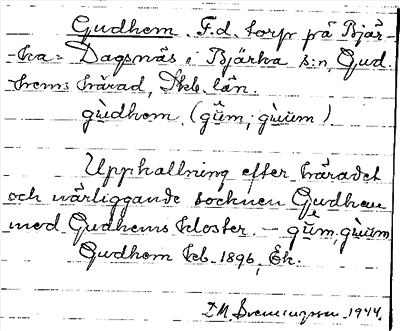 Gudhem. F.d. torp på Bjär-
-ka- Dagsnäs i Bjärka s:n, Gud.
hems härad, Skb. län.
gùdhem. (gûm; gùum)
Upphallning efter häradet
och närliggande socknen Gudhem
med Gudhems kloster. — gûm, gùum
Gudhem kb. 1896, Ek.
1944.